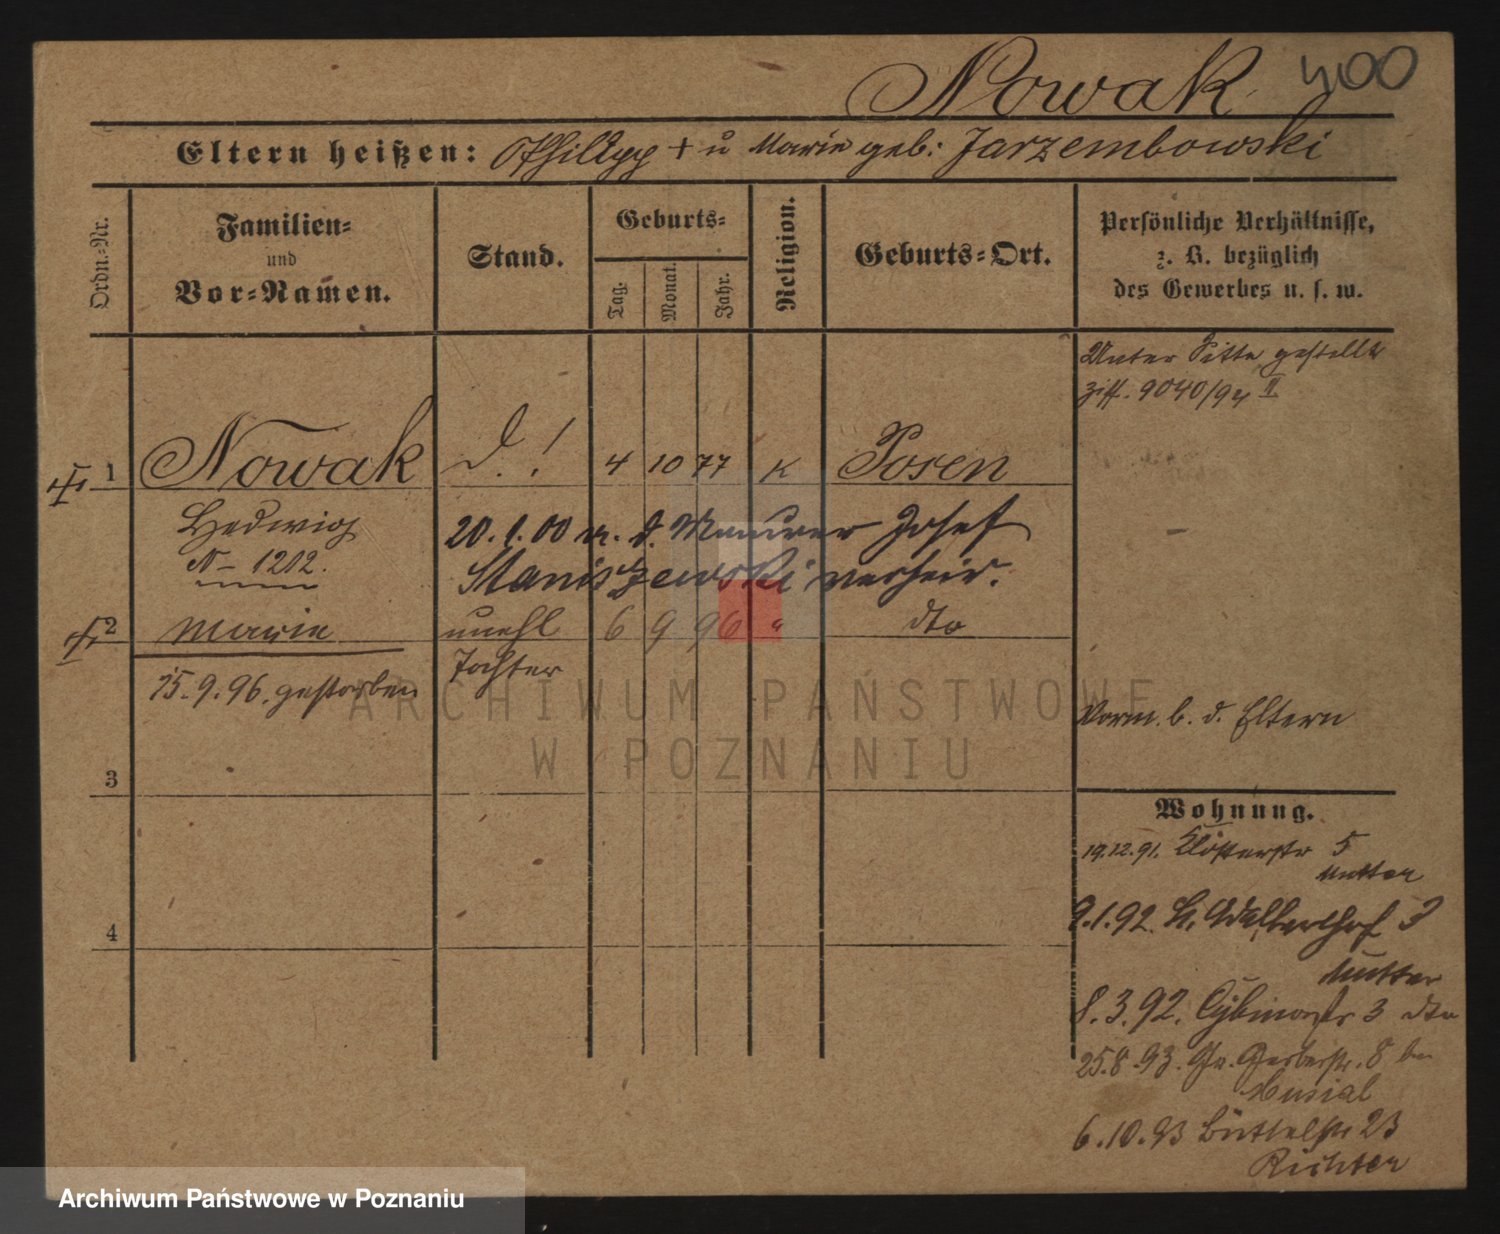 Nowak 400
Eltern heißen: Phillipp + u Marie geb: Jarzembowski
Ordn.-Nr.
Familien-
und
Vor-Namen.
Stand.
Geburts-
Tag.
Monat.
Jahr.
Religion.
Geburts-Ort.
Persönliche Verhältnisse,
z. B. bezüglich
des Gewerbes u. s. w.
Unter Sitte gestellt
9040/94 II
1 Nowak d.! 4 10 77 K Posen
Hedwig
N– 1212.
20.1.00 m. d. Maurer Josef
Staniszewski verheir.
2 Marie unehl 6 9 96 " dto
Tochter
15.9.96. gestorben
Vorm. b. d. Eltern
3
4
Wohnung.
19.12.91. Klosterstr 5
Mutter
9.1.92. St. Adalberthof 3
Mutter
8.3.92. Cybinastr 3 dto
25.8.93. Gr. Gerberstr. 8 bei
Musial
6.10.93 Büttelstr 23
Richter
ARCHIWUM PAŃSTWOWE
W POZNANIU
Archiwum Państwowe w Poznaniu